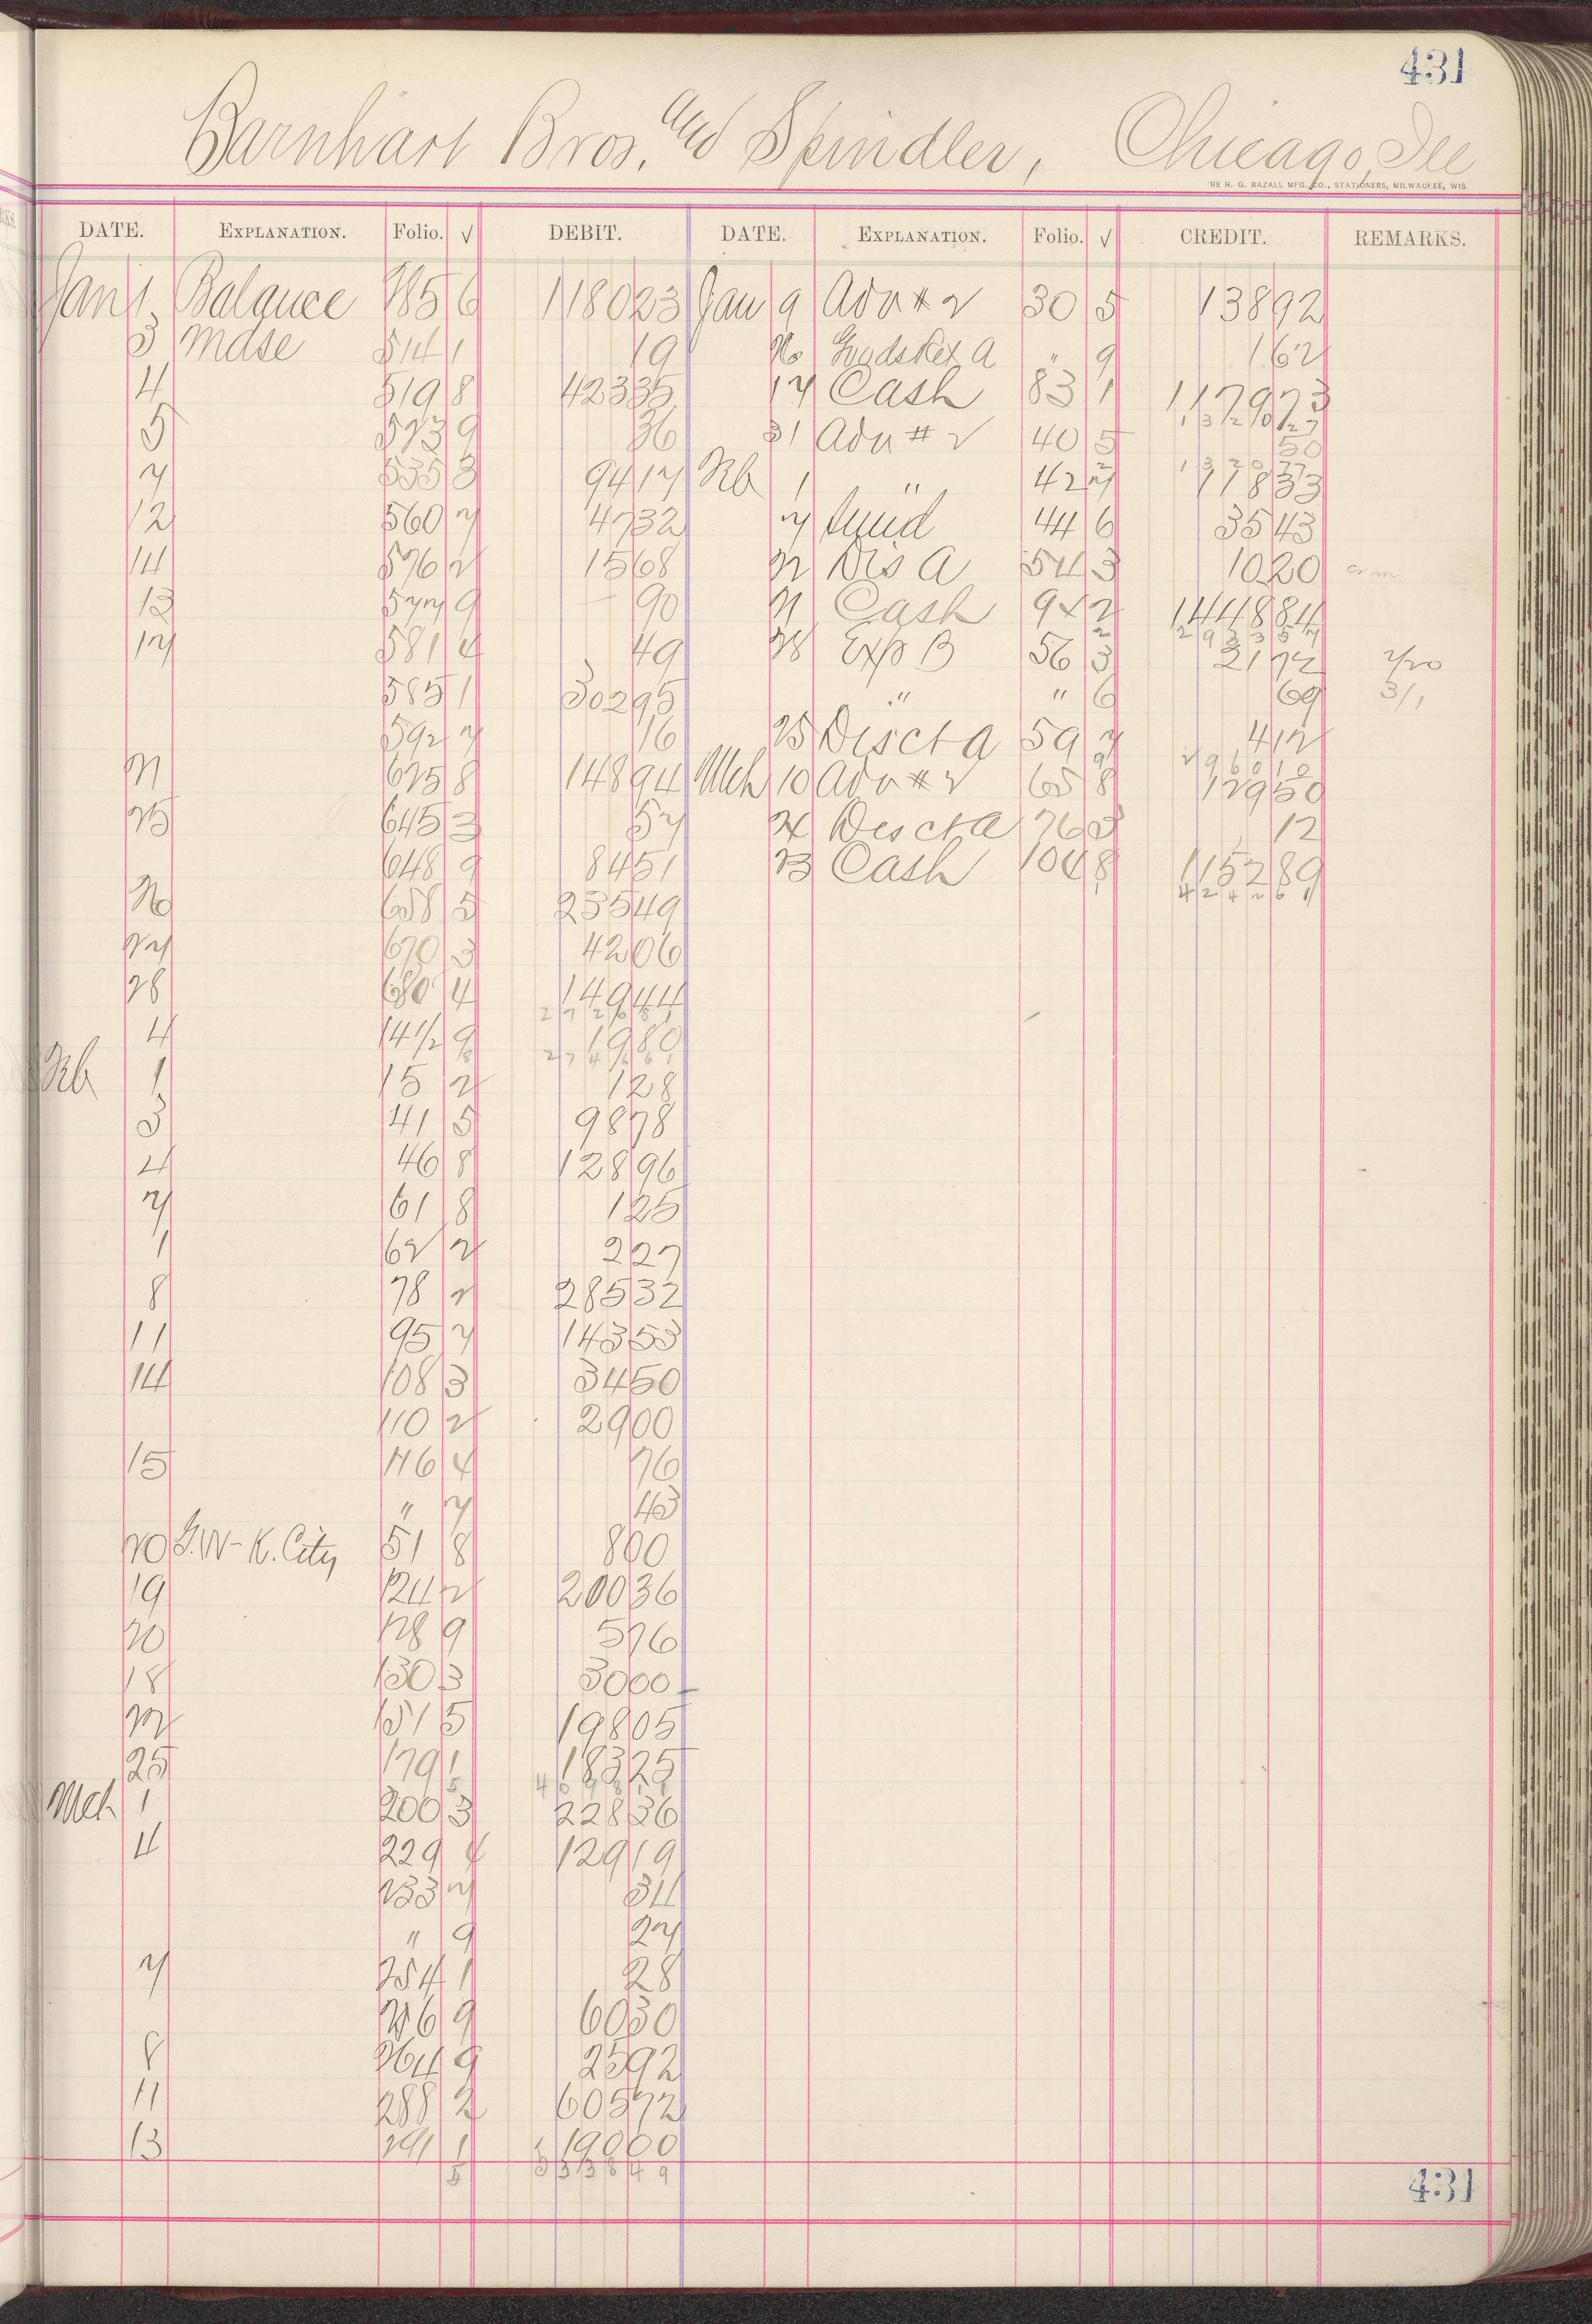 431
Barnhart Bros. and Spindler, Chicago, Ill
THE H. G. RAZALL MFG. CO., STATIONERS, MILWAUKEE, WIS.
DATE. EXPLANATION. Folio. √ DEBIT. DATE. EXPLANATION. Folio. √ CREDIT. REMARKS.
Jan 1 Balance 785 6 1180 23 Jan 9 Adv # 2 30 5 138 92
3 Mdse 514 1 19 26 A " 9 1 62
4 519 8 423 35 17 Cash 83 1 1179 73
1 3 2 0 2 7
5 573 9 36 31 Adv # 2 40 5 50
1 3 2 0 7 7
7 535 3 94 17 Feb 1 " 42 7 118 33
12 560 7 47 32 7 Sund 44 6 35 43
14 576 2 15 68 22 Dis A 54 3 10 20
13 577 9 90 21 Cash 9x 2 1448 84
2 9 3 3 5 7
17 581 4 49 28 Exp B 56 3 21 72 2/20
585 1 302 95 " " 6 69 3/1
592 7 16 25 Disct A 59 7 4 12
2 9 6 0 1 0
21 625 8 148 94 Mch 10 Adv # 2 65 8 129 50
25 645 3 57 24 Disct A 76 12
648 9 84 51 23 Cash 104 8 1152 89
4 2 4 2 6 1
26 658 5 235 49
27 670 3 42 06
28 680 4 149 44
2 7 2 6 8 1
4 14 1/2 9 19 80
2 7 4 6 6 1
Feb 1 15 2 1 28
3 41 5 98 78
4 46 8 128 96
7 61 8 1 25
1 62 2 2 27
8 78 2 285 32
11 95 7 143 53
14 108 3 34 50
110 2 29 00
15 116 4 76
" 7 43
20 G.W- K. City 51 8 8 00
19 124 2 200 36
20 128 9 5 76
18 130 3 30 00
22 151 5 198 05
25 179 1 183 25
Mch 1 200 3 228 36
4 229 4 129 19
233 7 34
" 9 27
7 254 1 28
9 60 30
8 264 9 25 92
11 288 2 605 72
13 291 1 190 00
5 3 3 8 4 9
431